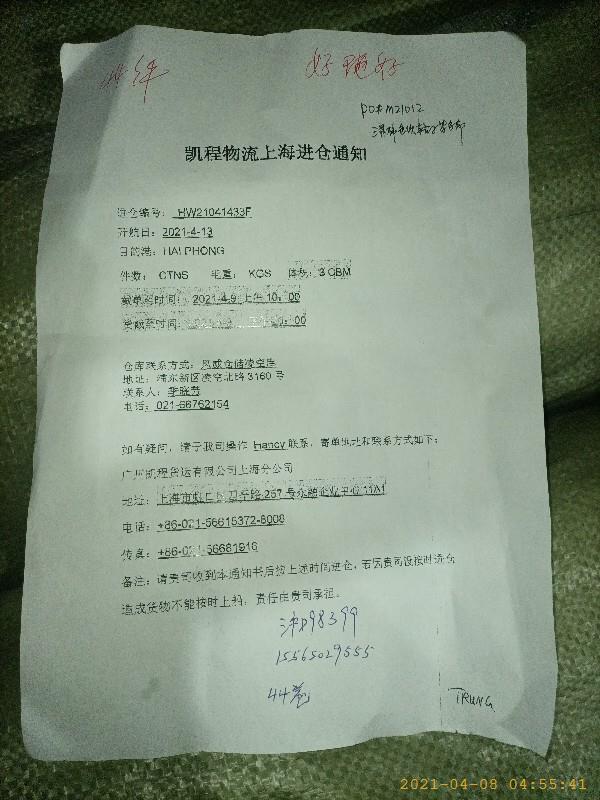 件
好
PO#M21012
凯程物流上海进仓通知
进仓编号: HW21041433F
开航日: 2021-4-13
目的港: HAI PHONG
件数: CTNS 毛重: KGS 体积: 3 CBM
截单时间: 2021-4-9 上午 10:00
仓库联系方式:
地址: 浦东新区凌空北路 3160 号
联系人:
电话: 021-68762154
如有疑问, 请于我司操作 Hancy 联系, 寄单地址和联系方式如下:
广州凯程货运有限公司上海分公司
地址: 上海市虹口区 257 号 企业中心 11A1
电话: +86-021-56615372-8008
传真: +86-021-56681916
备注: 请贵司收到本通知书后按上述时间进仓, 若因贵司没按时进仓
造成货物不能按时上船, 责任由贵司承担。
98399
15565029555
44卷
TRUNG
2021-04-08 04:55:41